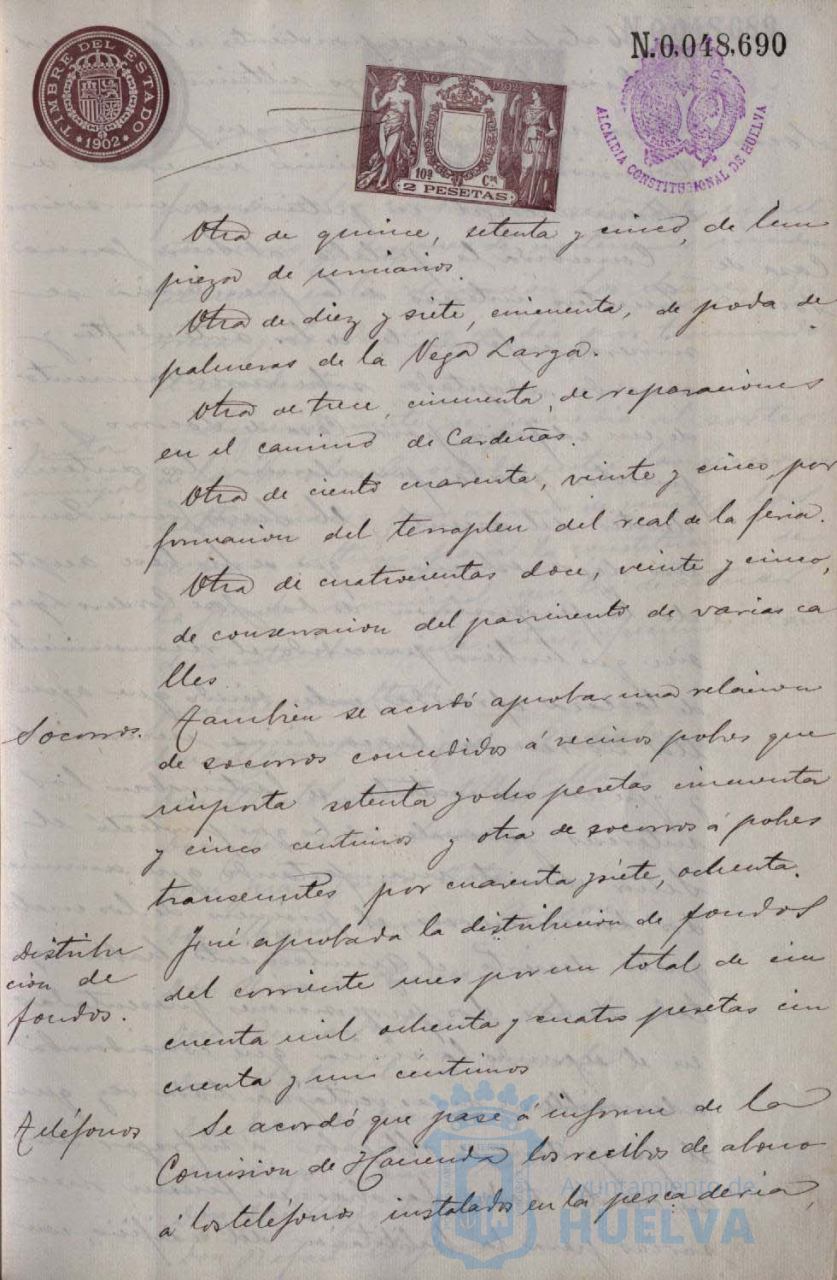 N.0,048,690
TIMBRE DEL ESTADO
*1902*
AÑO 1902
10ª Cª
2 PESETAS
ALCALDIA CONSTITUCIONAL DE HUELVA
Otra de quince, setenta y cinco, de lim
pieza de urinarios.
Otra de diez y siete, cincuenta, de poda de
palmeras de la Vega Larga.
Otra de trece, cincuenta, de reparaciones
en el camino de Cardeñas.
Otra de ciento cuarenta, veinte y cinco, por
formacion del terraplen del real de la feria.
Otra de cuatrocientas doce, veinte y cinco,
de conservacion del pavimento de varias ca
lles.
Socorros. Tambien se acordó aprobar una relacion
de socorros concedidos á vecinos pobres que
importa setenta y ocho pesetas cincuenta
y cinco centimos y otra de socorros á pobres
transeuntes por cuarenta y siete, ochenta.
Distribu
cion de
fondos.
Fué aprobada la distribucion de fondos
del corriente mes por un total de cin
cuenta mil ochenta y cuatro pesetas cin
cuenta y un centimos
Teléfonos Se acordó que pase á informe de la
Comision de Hacienda los recibos de abono
á los teléfonos instalados en la pescaderia,
Ayuntamiento de
HUELVA